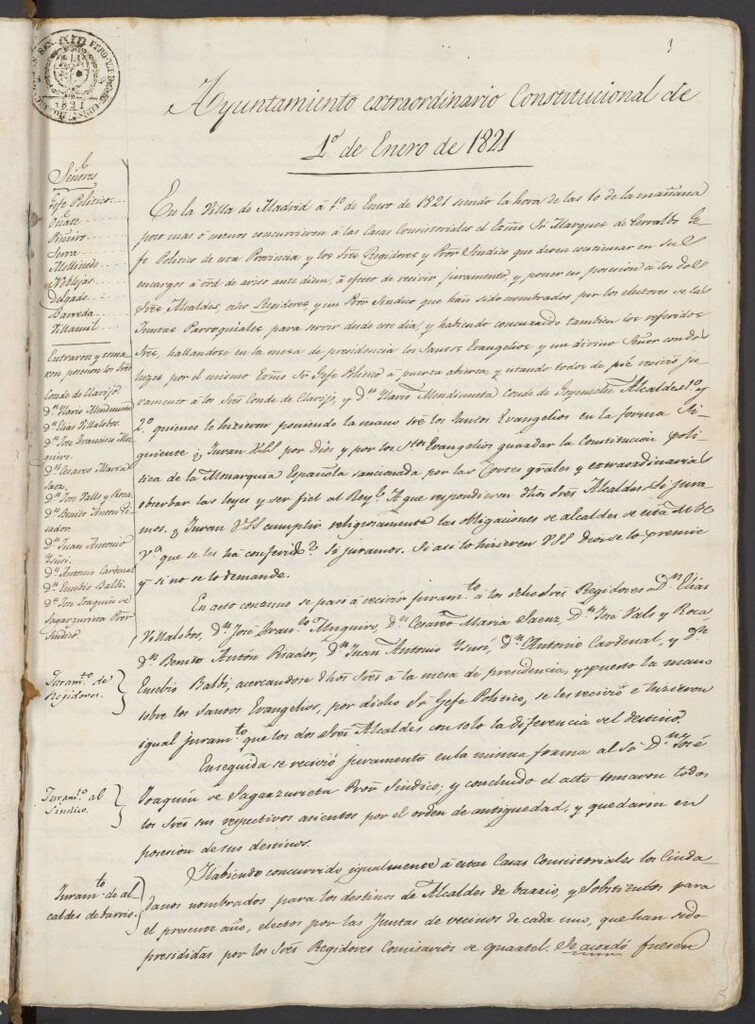 1
Ayuntamiento extraordinario Constitucional de
1.º de Enero de 1821
Señores
Gefe Politico
Oñate
Piñeiro
Surra
Delgado
Barreda
Villamil
Entraron y toma
ron posesion los Sres
Conde de Clavijo
D.n Ilario Mendinueta
D.n Elias Villalobos
D.n Jose Francisco Mu
guiro
D.n Cesareo Maria
Saenz
D.n Jose Valls y Roca
D.n Benito Anton Pi
sador
D.n Juan Antonio
Ysusi
D.n Antonio Cardenal
D.n Eusebio Balbi
D.n Jose Joaquin de
Sagarzurieta Pror
Sindico
En la Villa de Madrid á 1.º de Enero de 1821 siendo la hora de las 10 de la mañana
poco mas ó menos concurrieron á las Casas Consistoriales el Exmo Sr Marques de Cerralbo Ge-
fe Politico de esta Provincia y los Sres Regidores y Pror Sindico que deven continuar en su
encargo á vrd de aviso ante diem, á efecto de recivir juramento, y poner en posesion á los dos
Sres Alcaldes, ocho Regidores, y un Pror Sindico que han sido nombrados por los electores de las
Juntas Parroquiales para servir desde este dia, y habiendo concurrido tambien los referidos
Sres, hallandose en la mesa de presidencia los Santos Evangelios y un divino Señor con dos
luces, por el mismo Exmo Sr Gefe Politico á puerta abierta, y estando todos de pié recivió ju-
ramento á los Sres Conde de Clavijo, y D.n Ilario Mendinueta Conde de Goyeneche Alcaldes 1.º y
2.º quienes lo hizieron poniendo la mano sre los Santos Evangelios en la forma Si-
guiente ¿Juran VSS por Dios y por los S.tos Evangelios guardar la Constitución poli-
tica de la Monarquia Española sancionada por las Cortes grales y extraordinarias
observar las leyes y ser fiel al Rey? A que respondieron dhos Sres Alcaldes Si jura
mos. ¿Juran VSS cumplir religiosamente las obligaciones de alcaldes de esta M. H.
V.ª que se les ha conferido? Si juramos. Si asi lo hiziesen VSS Dios se lo premie
y si no se lo demande.
En acto continuo se pasó á recivir juram.to á los ocho Sres Regidores D.n Elias
Villalobos, D.n José Fran.co Muguiro, D.n Cesareo Maria Saenz, D.n José Vals y Roca
D.n Benito Antón Pisador, D.n Juan Antonio Ysusi, D.n Antonio Cardenal, y D.n
Eusebio Balbi, acercandose dhos Sres á la mesa de presidencia, y puesto la mano
sobre los Santos Evangelios, por dicho Sr Gefe Politico, se les recivió é hizieron
igual juram.to que los dos Sres Alcaldes con solo la diferencia del destino.
Enseguida se recivió juramento en la misma forma al Sr D.n José
Joaquín de Sagarzurieta Pror Sindico; y concluido el acto tomaron todos
los Sres sus respectivos asientos por el orden de antiguedad, y quedaron en
posesion de sus destinos.
Habiendo concurrido igualmente á estas Casas Consistoriales los Ciuda-
danos nombrados para los destinos de Alcaldes de barrio, y Sobstitutos para
el presente año, electos por las Juntas de vecinos de cada uno, que han sido
presididas por los Sres Regidores Comisarios de quartel. Se acordó fuesen
Juram.to de
Regidores.
Juram.to al
Sindico.
Juram.to de al
caldes de barrio.